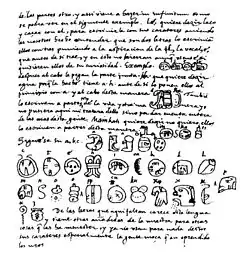 de las partes otro, y assi viene a hazer in infinitum como se
podra ver en el siguiente exemplo. Le, quiere dezir laço
y caçar con el, para escrivirle con sus carateres aviendo
les nosotros hecho entender que son dos letras lo escrivian
ellos con tres puniendo a la aspiracion de la l, la vocal e,
que antes de si trae, y en esto no hierran aunque
quisieren ellos de su curiosidad. Exemplo.
despues al cabo le pegan la parte junta. Ha que quiere dezir
agua porq la hache tiene a h antes de si la ponen ellos al
principio con a y al cabo desta manera Tambie
lo escriven a partes de la una y otra manera yo
no pusiera aqui ni tratara dello sino por dar cuenta entera
de las cosas desta gente. Ma in kati quiere dezir no quiero ellos
lo escriven a partes desta manera
Siguese su a, b, c.
De las letras que aqui faltan carece esta lengua
y tiene otras añadidas de la nuestra para otras
cosas q las ha menester, y ya no usan para nada destos
sus carateres especialmente la gente moça q an aprendido
los nros